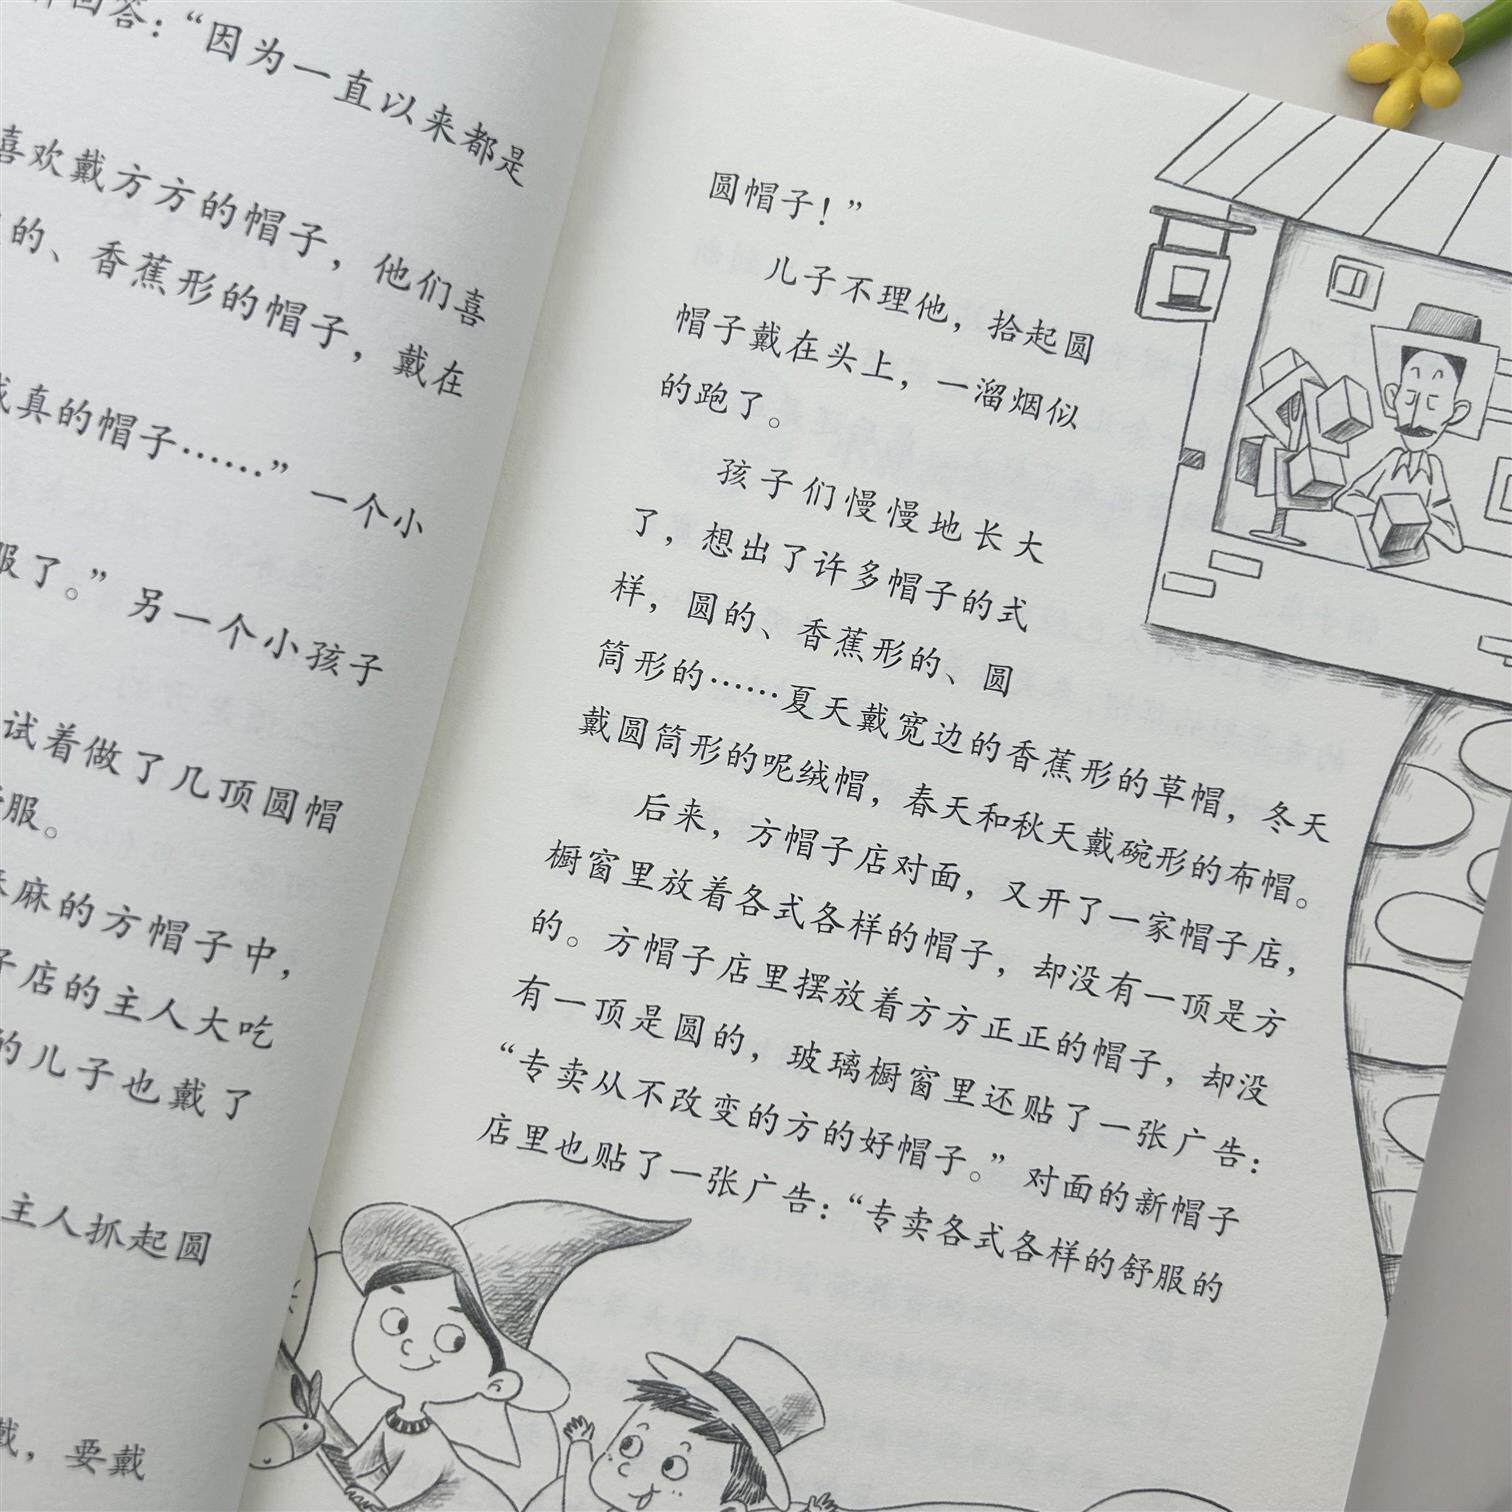 回答：“因为一直以来都是
喜欢戴方方的帽子，他们喜
的、香蕉形的帽子，戴在
真的帽子……”一个小
服了。”另一个小孩子
试着做了几顶圆帽
服。
麻的方帽子中，
子店的主人大吃
的儿子也戴了
主人抓起圆
戴，要戴
圆帽子！”
儿子不理他，拾起圆
帽子戴在头上，一溜烟似
的跑了。
孩子们慢慢地长大
了，想出了许多帽子的式
样，圆的、香蕉形的、圆
筒形的……夏天戴宽边的香蕉形的草帽，冬天
戴圆筒形的呢绒帽，春天和秋天戴碗形的布帽。
后来，方帽子店对面，又开了一家帽子店，
橱窗里放着各式各样的帽子，却没有一顶是方
的。方帽子店里摆放着方方正正的帽子，却没
有一顶是圆的，玻璃橱窗里还贴了一张广告：
“专卖从不改变的方的好帽子。”对面的新帽子
店里也贴了一张广告：“专卖各式各样的舒服的